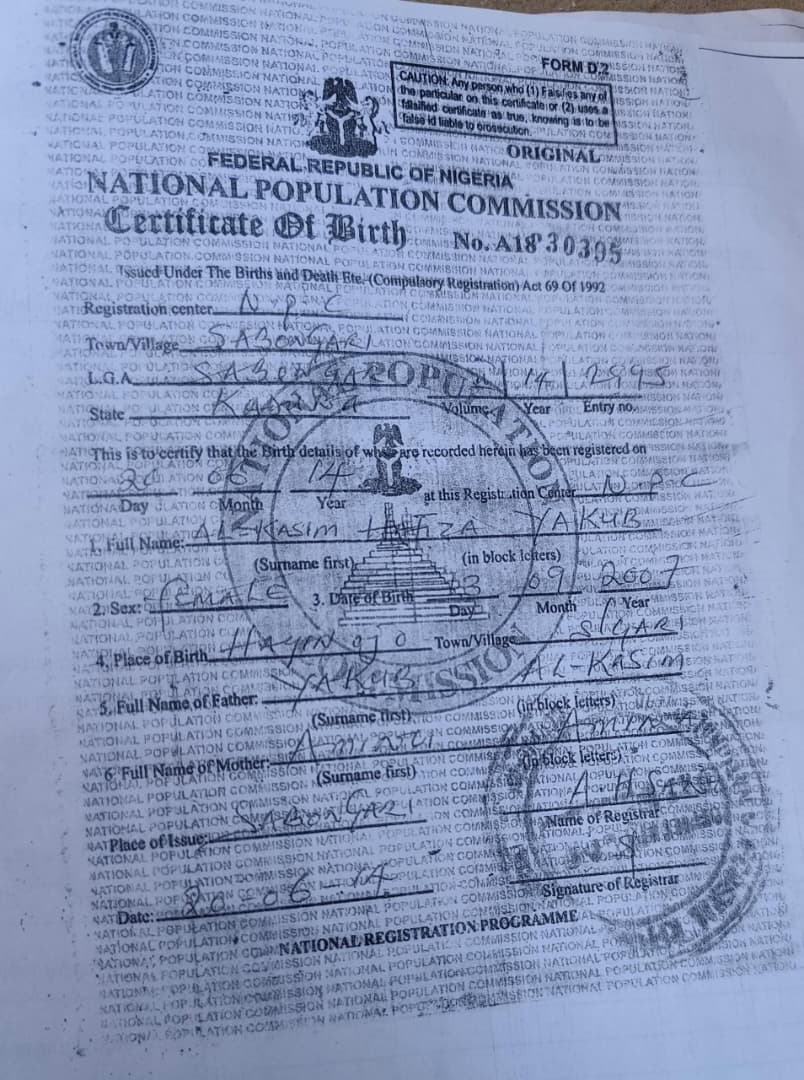 FORM D2
CAUTION: Any person who (1) Falsifies any of
the particular on this certificate or (2) uses a
falsified certificate as true, knowing is to be
false id liable to prosecution.
ORIGINAL
FEDERAL REPUBLIC OF NIGERIA
NATIONAL POPULATION COMMISSION
Certificate Of Birth No. A1830395
Issued Under The Births and Death Ete. (Compulsory Registration) Act 69 Of 1992
Registration center N.P.C
Town/Village SABON GARI
L.G.A SABON GARI
14 2995
State KADUNA Volume Year Entry no.
This is to certify that the Birth details of whom are recorded herein has been registered on
20 06 14 at this Registration Center N.P.C
Day Month Year
1. Full Name: AL-KASIM YAKUB
(Surname first) (in block letters)
2. Sex: FEMALE 3. Date of Birth 09 2007
Day Month Year
4. Place of Birth Town/Village S/GARI
5. Full Name of Father: YAKUB AL-KASIM
(Surname first) (in block letters)
6. Full Name of Mother:
(Surname first) (in block letters)
Place of Issue: SABON GARI
Name of Registrar
Signature of Registrar
Date: 20-06-14
NATIONAL REGISTRATION PROGRAMME
NATIONAL POPULATION COMMISSION